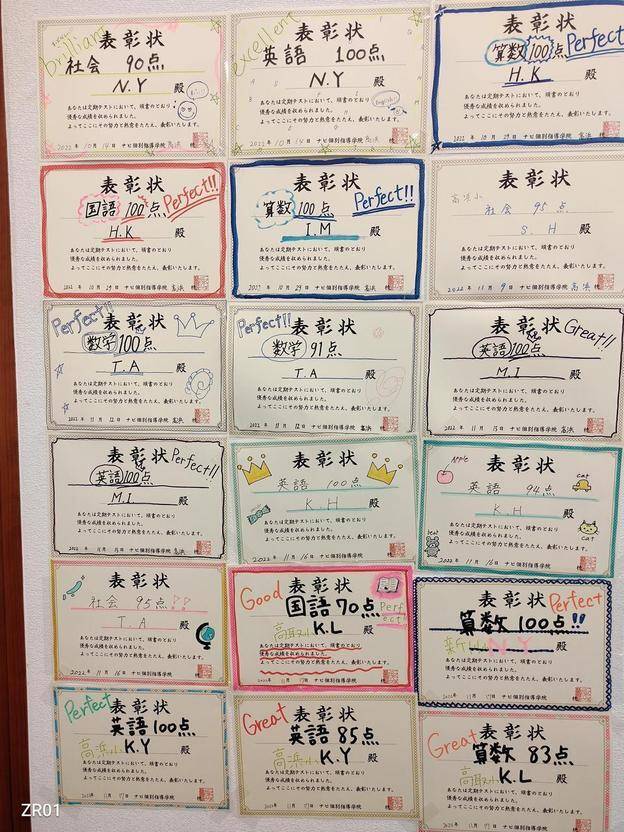 brilliant
表彰状
社会 90点
N.Y 殿
あなたは定期テストにおいて、頭書のとおり
優秀な成績を収められました。
よってここにその努力と熱意をたたえ、表彰いたします。
2022年10月14日 ナビ個別指導学院 高浜 校
excellent
表彰状
英語 100点
N.Y 殿
English!
あなたは定期テストにおいて、頭書のとおり
優秀な成績を収められました。
よってここにその努力と熱意をたたえ、表彰いたします。
2022年10月14日 ナビ個別指導学院 高浜 校
表彰状
算数 100点 Perfect
H.K 殿
あなたは定期テストにおいて、頭書のとおり
優秀な成績を収められました。
よってここにその努力と熱意をたたえ、表彰いたします。
2022年10月29日 ナビ個別指導学院 高浜 校
表彰状
国語 100点 Perfect!!
H.K 殿
あなたは定期テストにおいて、頭書のとおり
優秀な成績を収められました。
よってここにその努力と熱意をたたえ、表彰いたします。
2022年10月29日 ナビ個別指導学院 高浜 校
表彰状
算数 100点 Perfect!!
I.M 殿
あなたは定期テストにおいて、頭書のとおり
優秀な成績を収められました。
よってここにその努力と熱意をたたえ、表彰いたします。
2022年10月29日 ナビ個別指導学院 高浜 校
表彰状
高浜小
社会 95点
S.H 殿
あなたは定期テストにおいて、頭書のとおり
優秀な成績を収められました。
よってここにその努力と熱意をたたえ、表彰いたします。
2022年11月9日 ナビ個別指導学院 高浜 校
Perfect!!
表彰状
数学 100点
T.A 殿
あなたは定期テストにおいて、頭書のとおり
優秀な成績を収められました。
よってここにその努力と熱意をたたえ、表彰いたします。
2022年11月12日 ナビ個別指導学院 高浜 校
Perfect!!
表彰状
数学 91点
T.A 殿
あなたは定期テストにおいて、頭書のとおり
優秀な成績を収められました。
よってここにその努力と熱意をたたえ、表彰いたします。
2022年11月12日 ナビ個別指導学院 高浜 校
表彰状
Great!!
英語 100点
M.I 殿
あなたは定期テストにおいて、頭書のとおり
優秀な成績を収められました。
よってここにその努力と熱意をたたえ、表彰いたします。
2022年11月15日 ナビ個別指導学院 高浜 校
表彰状
Perfect!!
英語 100点
M.I 殿
あなたは定期テストにおいて、頭書のとおり
優秀な成績を収められました。
よってここにその努力と熱意をたたえ、表彰いたします。
2022年11月15日 ナビ個別指導学院 高浜 校
表彰状
英語 100点
K.H 殿
あなたは定期テストにおいて、頭書のとおり
優秀な成績を収められました。
よってここにその努力と熱意をたたえ、表彰いたします。
2022年11月16日 ナビ個別指導学院 校
Apple
表彰状
英語 94点
car
K.H 殿
cat
あなたは定期テストにおいて、頭書のとおり
優秀な成績を収められました。
よってここにその努力と熱意をたたえ、表彰いたします。
2022年11月16日 ナビ個別指導学院 校
表彰状
社会 95点!!
T.A 殿
あなたは定期テストにおいて、頭書のとおり
優秀な成績を収められました。
よってここにその努力と熱意をたたえ、表彰いたします。
2022年11月16日 ナビ個別指導学院 校
Good
表彰状
国語 70点
Perfect!
高取小 K.L 殿
あなたは定期テストにおいて、頭書のとおり
優秀な成績を収められました。
よってここにその努力と熱意をたたえ、表彰いたします。
11月17日 ナビ個別指導学院 校
表彰状
Perfect
算数 100点!!
N.Y 殿
あなたは定期テストにおいて、頭書のとおり
優秀な成績を収められました。
よってここにその努力と熱意をたたえ、表彰いたします。
11月17日 ナビ個別指導学院 校
Perfect
表彰状
英語 100点
高浜小 K.Y 殿
あなたは定期テストにおいて、頭書のとおり
優秀な成績を収められました。
よってここにその努力と熱意をたたえ、表彰いたします。
11月17日 ナビ個別指導学院 校
Great
表彰状
英語 85点
高浜小 K.Y 殿
あなたは定期テストにおいて、頭書のとおり
優秀な成績を収められました。
よってここにその努力と熱意をたたえ、表彰いたします。
11月17日 ナビ個別指導学院 校
Great
表彰状
算数 83点
高取小 K.L 殿
あなたは定期テストにおいて、頭書のとおり
優秀な成績を収められました。
よってここにその努力と熱意をたたえ、表彰いたします。
11月17日 ナビ個別指導学院 校
ZR01